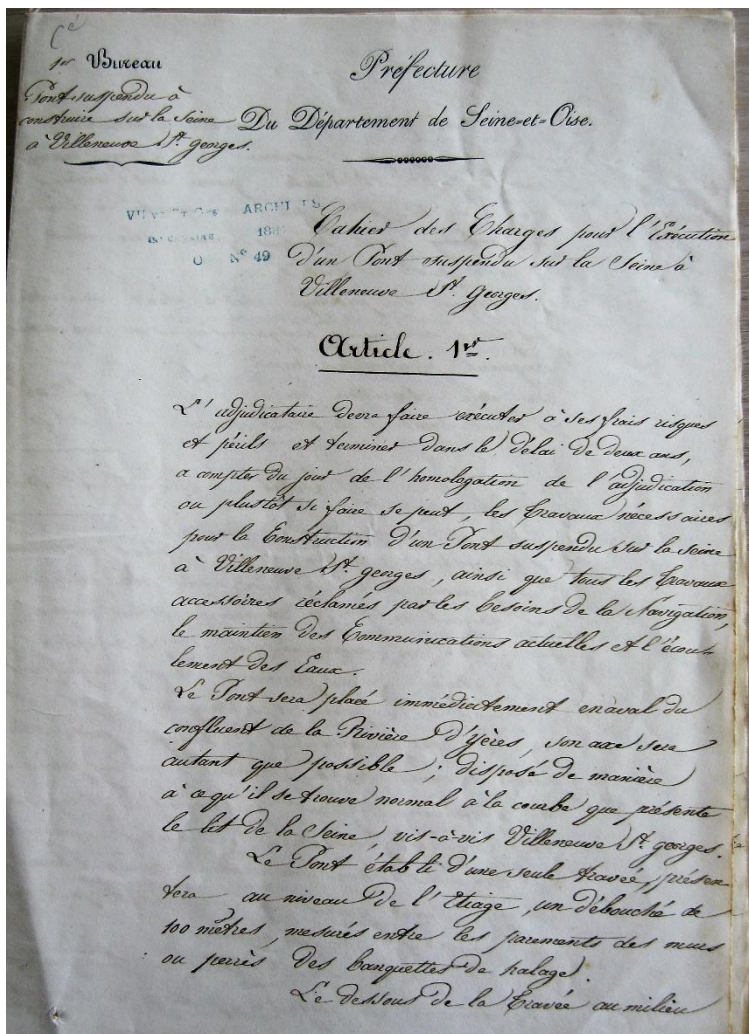 Cé
1er Bureau
Pont suspendu à
construire sur la Seine
à Villeneuve St. georges.
Préfecture
Du Département de Seine-et-Oise.
ARCHIVES
18
O N° 49
Cahier des Charges pour l'Exécution
d'un Pont suspendu sur la Seine à
Villeneuve St. Georges.
Article. 1er.
L'adjudicataire devra faire exécuter à ses frais risques
et périls et terminer dans le délai de deux ans,
a compter du jour de l'homologation de l'adjudication
ou plustôt si faire se peut, les travaux nécessaires
pour la Construction d'un Pont suspendu sur la Seine
à Villeneuve St. georges, ainsi que tous les travaux
accessoires réclamés par les besoins de la Navigation,
le maintien des Communications actuelles et l'écou-
lement des Eaux.
Le Pont sera placé immédictement en aval du
confluent de la Rivière d'Yères, son axe sera
autant que possible; disposé de manière
à ce qu'il se trouve normal à la courbe que présente
le lit de la Seine, vis-à-vis Villeneuve St. georges.
Le Pont établi d'une seule travée, présen
tera au niveau de l'Etiage, un débouché de
100 mètres, mesurés entre les parements des murs
ou perrés des banquettes de halage.
Le dessous de la Travée au milieu